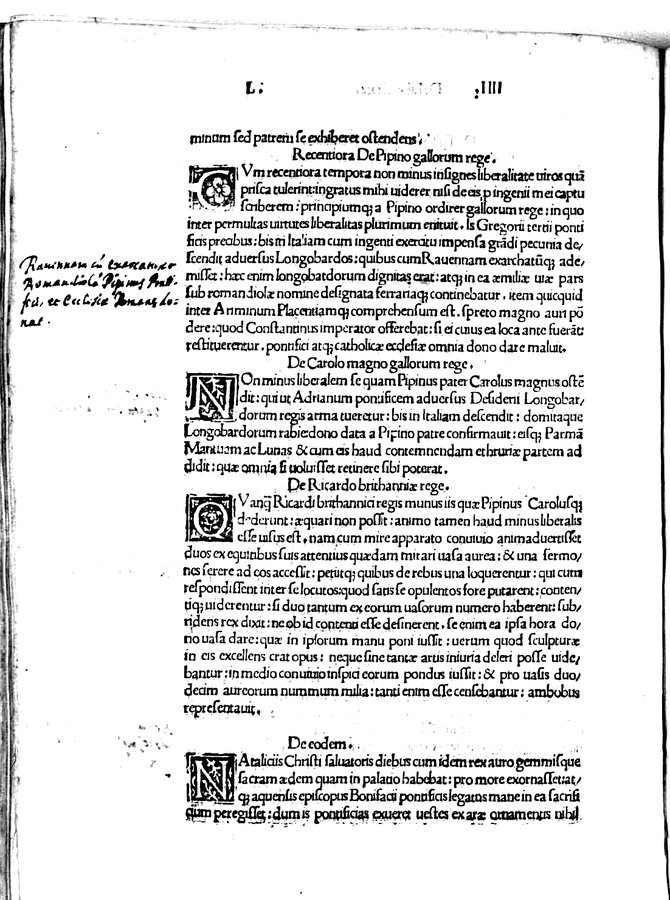 L. IIII.
minum sed patrem se exhiberet ostendens.
Recentiora De Pipino gallorum rege.
CVm recentiora tempora non minus insignes liberalitate uiros quā
prisca tulerint: ingratus mihi uiderer nisi de eis ,p ingenii mei captu
scriberem: principiumq; a Pipino ordirer gallorum rege: in quo
inter permultas uirtutes liberalitas plurimum enituit. Is Gregorii tertii ponti
ficis precibus: bis in Italiam cum ingenti exercitu impensa grādi pecunia de/
scendit aduersus Longobardos: quibus cum Rauennam exarchatūq; ade/
misset: hæc enim longobatdorum dignitas erat: atq; in ea æmiliæ uiæ pars
sub romandiolæ nomine designata ferrariaq; continebatur. item quicquid
inter Ariminum Placentiamq; comprehensum est. spreto magno auri pō
dere: quod Constantinus imperator offerebat: si ei cuius ea loca ante fuerāt
restituerentur. pontifici atq; catholicæ ecclesiæ omnia dono dare maluit.
Rauennam cū Exarcatu
Romandiola Pipinus
et Ecclesiæ do-
nat.
De Carolo magno gallorum rege.
NOn minus liberalem se quam Pipinus pater Carolus magnus ostē
dit: qui ut Adrianum pontificem aduersus Desiderii Longobar/
dorum regis arma tueretur: bis in Italiam descendit: domitaque
Longobardorum rabie: dono data a Pipino patre confirmauit: eisq; Parmā
Mantuam ac Lunas & cum eis haud contemnendam ethruriæ partem ad
didit: quæ omnia si uoluisset retinere sibi poterat.
De Ricardo brithanniæ rege.
QVanq̄ Ricardi brithannici regis munus iis quæ Pipinus Carolusq;
dederunt: æquari non possit: animo tamen haud minus liberalis
esse uisus est. nam cum mire apparato conuiuio animaduertisset
duos ex equitibus suis attentius quædam mirari uasa aurea: & una sermo/
nes serere ad eos accessit: petiitq; quibus de rebus una loquerentur: qui cum
respondissent inter se locutos: quod satis se opulentos fore putarent: conten/
tiq; uiderentur: si duo tantum ex eorum uasorum numero haberent: sub/
ridens rex dixit: ne ob id contenti esse desinerent. se enim ea ipsa hora do/
no uasa dare: quæ in ipsorum manu poni iussit: uerum quod sculpturæ
in eis excellens erat opus: neque sine tantæ artis iniuria deleri posse uide/
bantur: in medio conuiuio inspici eorum pondus iussit: & pro uasis duo/
decim aureorum nummum milia: tanti enim esse censebantur: ambobus
representauit.
De eodem.
NAtaliciis Christi saluatoris diebus cum idem rex auro gemmisque
sacram ædem quam in palatio habebat: pro more exornasset: at/
q; aquensis episcopus Bonifacii pontificis legatus mane in ea sacrifi
cium peregisset: dum is pontificias exueret uestes ex aræ ornamentis nihil